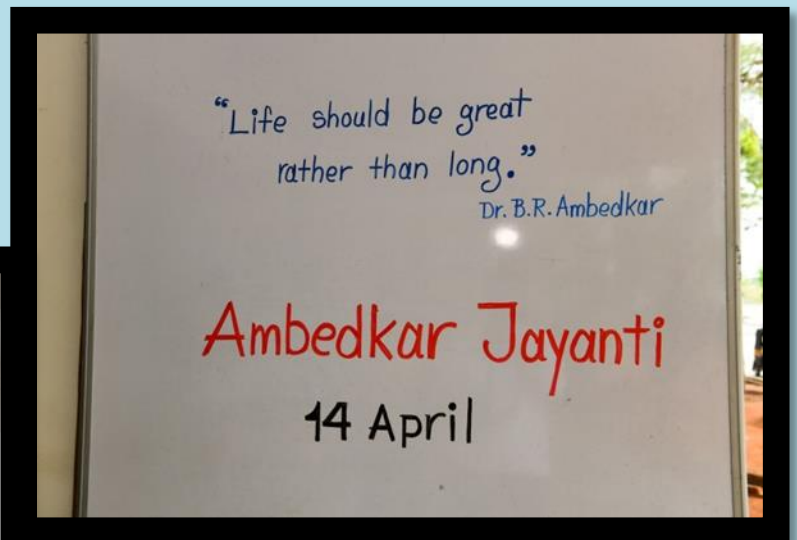 “Life should be great
rather than long.”
Dr. B.R. Ambedkar
Ambedkar Jayanti
14 April